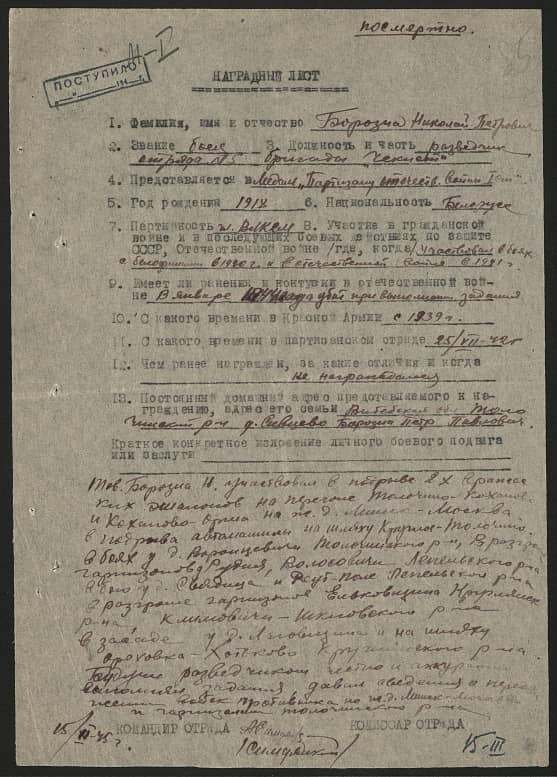 посмертно.
ПОСТУПИЛО
НАГРАДНЫЙ ЛИСТ
1. Фамилия, имя и отчество Борозна Николай Петрович
2. Звание боец 3. Должность и часть разведчик
отряда №5 бригады "Чекист"
4. Представляется к Медали "Партизану отечеств. войны" I ст.
5. Год рождения 1918 6. Национальность Белорус
7. Партийность чл. ВЛКСМ 8. Участие в гражданской
войне и в последующих боевых действиях по защите
СССР, Отечественной войне /где, когда/ участвовал в боях
с белофинами в 1940 г. и в отечественной войне с 1941 г.
9. Имеет ли ранения и контузии в отечественной вой-
не В январе 1944 года убит при выполнении задания
10. С какого времени в Красной Армии с 1939 г.
11. С какого времени в партизанском отряде 25/VII-42г
12. Чем ранее награжден, за какие отличия и когда
не награждался
13. Постоянный домашний адрес представляемого к на-
граждению, адрес его семьи Витебская обл. Толо
чинский р-н д. Сивцево Борозна Петр Павлович.
Краткое конкретное изложение личного боевого подвига
или заслуги
Тов. Борозна Н. участвовал в подрыве 2х вражес
ких эшелонов на перегоне Толочино-Коханово
и Коханово-Орша на ж.д. Минск-Москва
в подрыве автомашины на шляху Круглое-Толочино,
в боях у д. Воронцевичи Толочинского р-н, В разгроме
гарнизонов Рудня, Волосовичи Лепельского р-на
в бою у д. Свядица и Лепельского р-на
в разгроме гарнизонов
р-на Климовичи-Шкловского р-на
в засаде у д. и на шляху
Ореховка-Хотьково Круглянского р-на.
Будучи разведчиком честно и аккуратно
выполнял задания давал сведения о перед
жении войск противника по ж.д. Минск-Москва
и гарнизонам Толочинского р-на
КОМАНДИР ОТРЯДА КОМИССАР ОТРЯДА
15/III-45г. 15-III